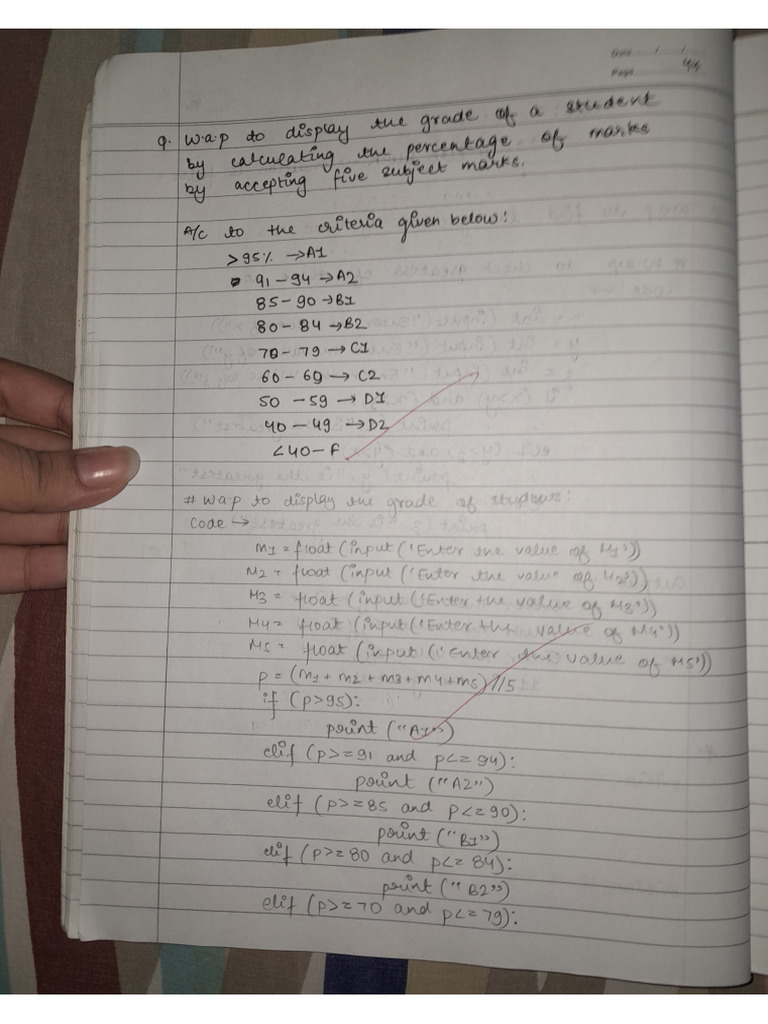 Date / /
Page 44
Q. W.a.p to display the grade of a student
by calculating the percentage of marks
by accepting five subject marks.
A/c to the criteria given below:
>95% →A1
91-94 →A2
85-90 →B1
80-84 →B2
70-79 → C1
60-69 → C2
50-59 → D1
40-49 →D2
<40-F
# W.a.p to display the grade of students:
Code →
M1 = float (input ('Enter the value of M1'))
M2 = float (input ('Enter the value of M2'))
M3 = float (input ('Enter the value of M3'))
M4 = float (input ('Enter the value of M4'))
M5 = float (input ('Enter the value of M5'))
P = (M1 + m2 + m3 + m4 + m5) // 5
if (P>95):
print ("A1")
elif (P>=91 and P<=94):
print ("A2")
elif (P>=85 and P<=90):
print ("B1")
elif (P>=80 and P<=84):
print ("B2")
elif (P>=70 and P<=79):